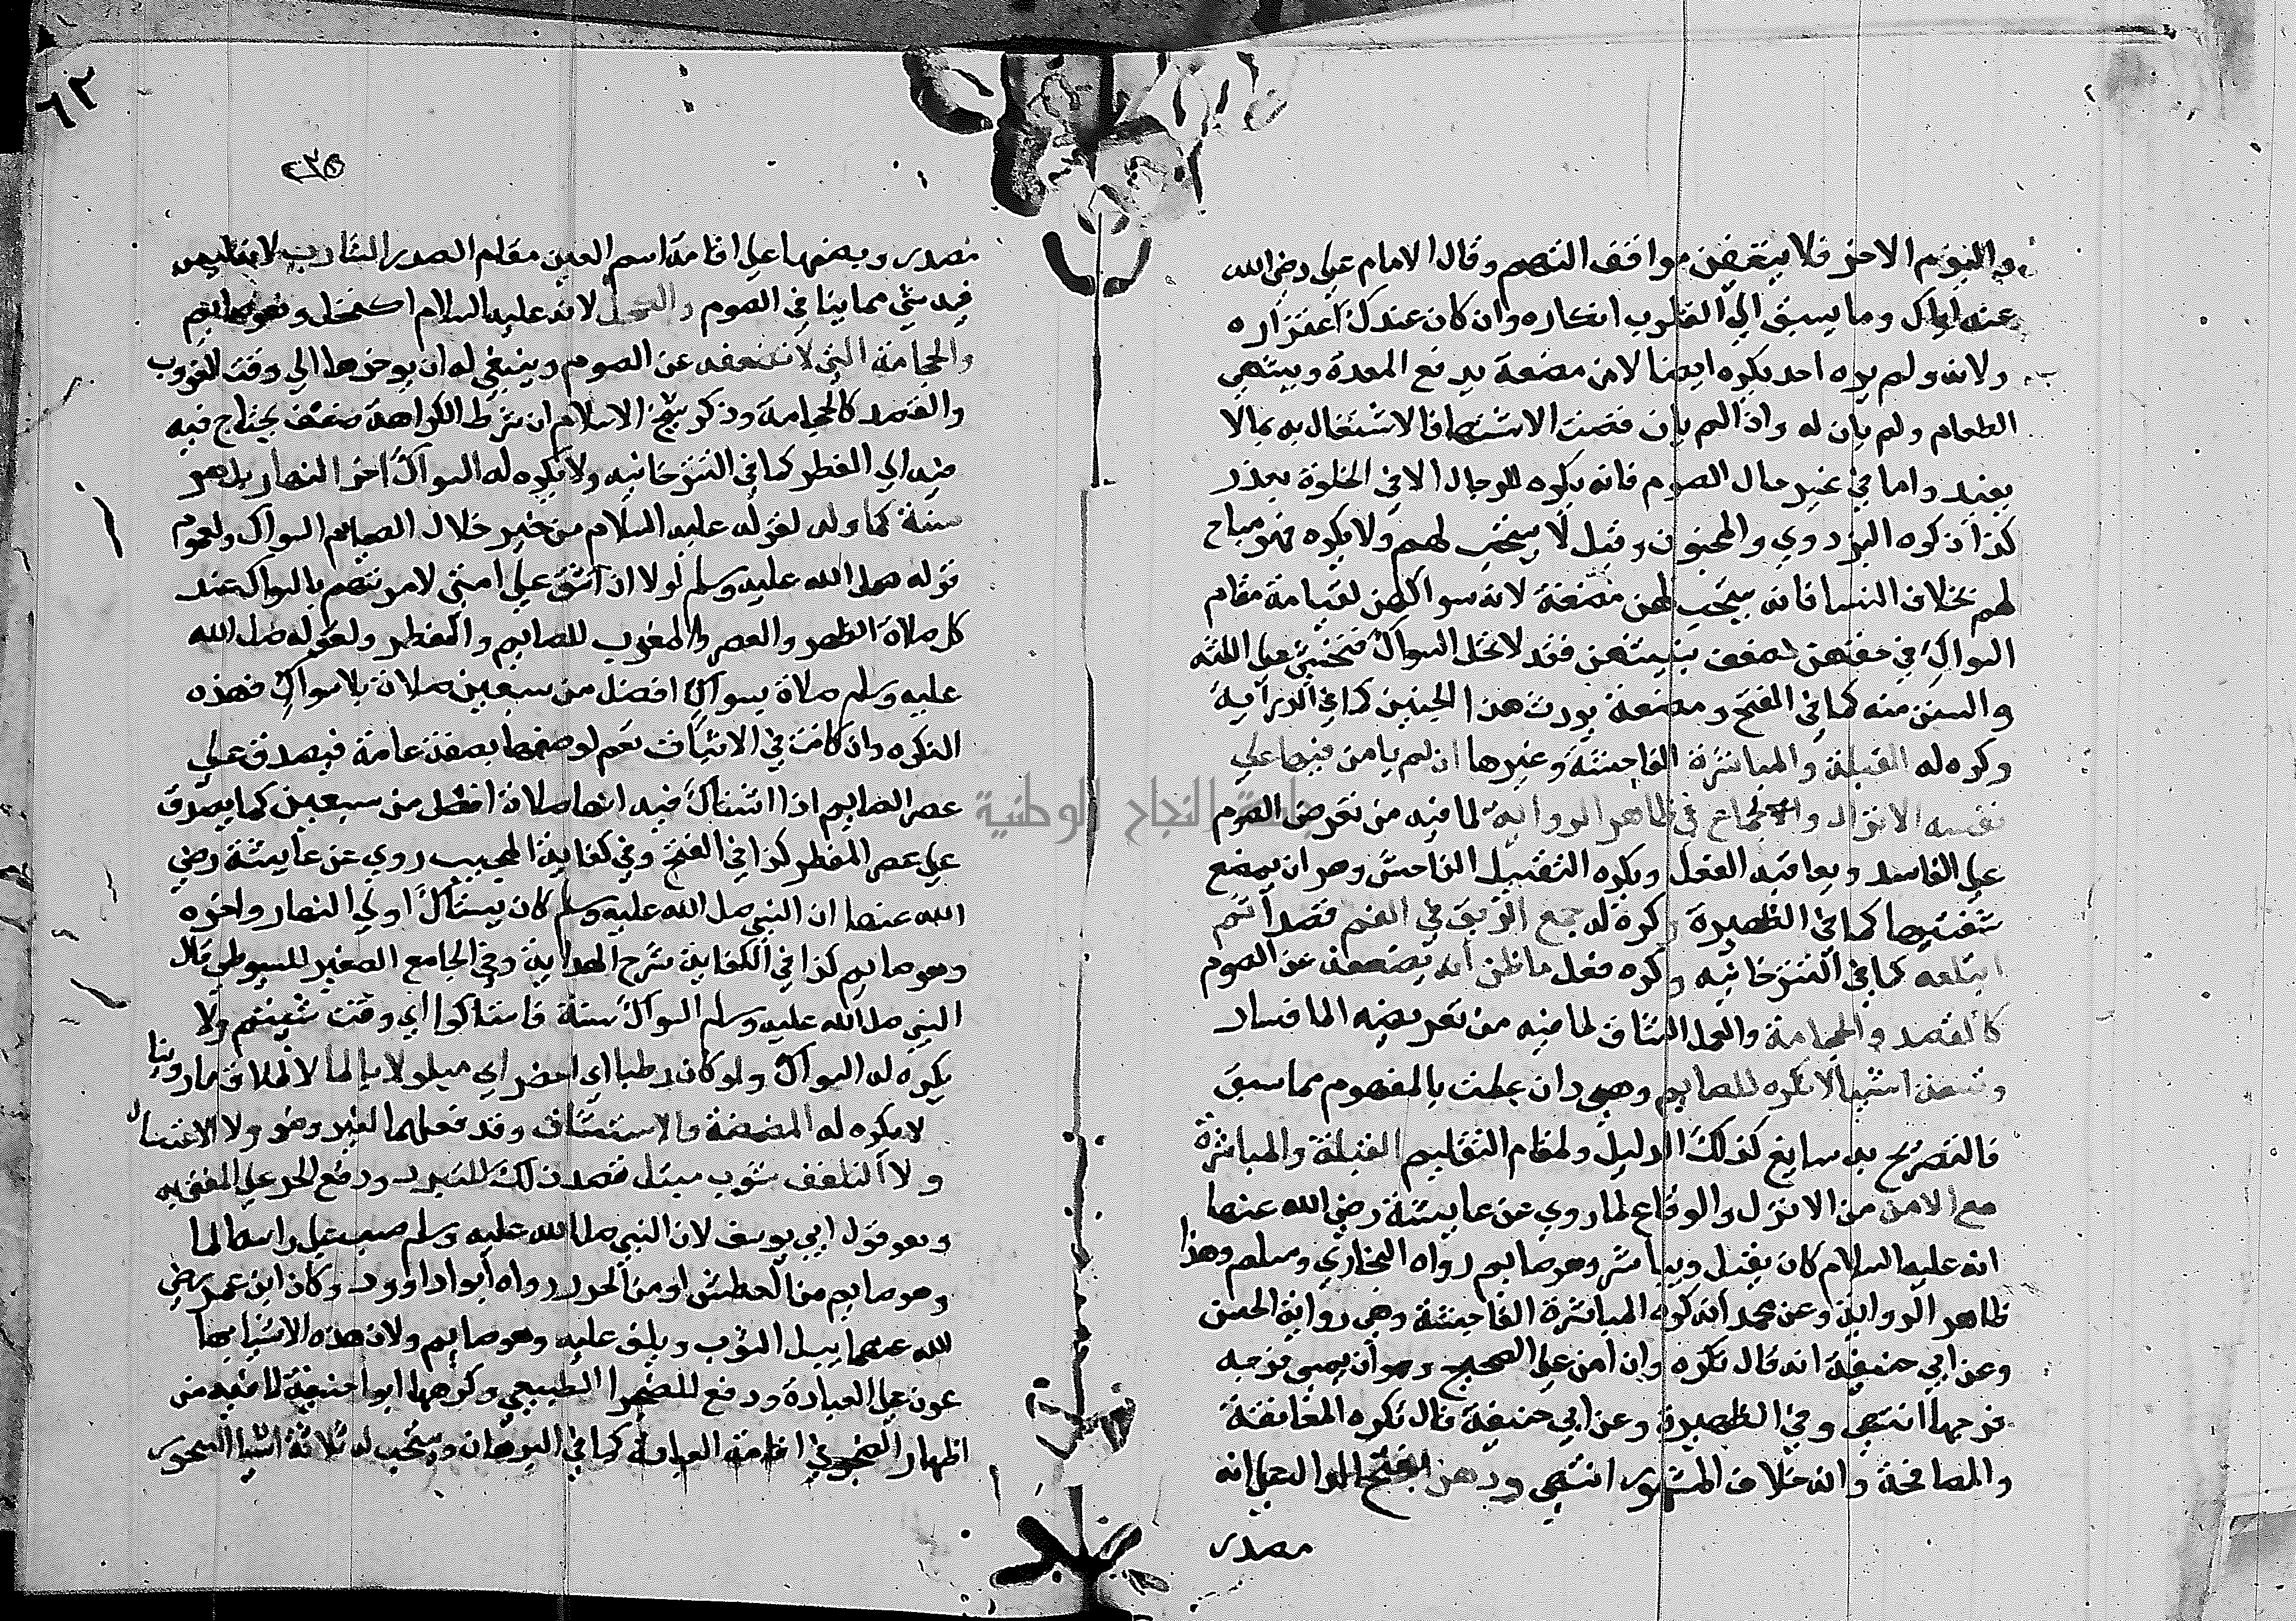 واليوم الاخر فلا يقفن مواقف التهم وقال الامام علي رضي الله
عنه اياك وما يسبق الي القلوب انكاره وان كان عندك اعتذاره
ولانه ولم يره احد يكره ايضا لان مضغة يدبغ المعدة ويشهي
الطعام ولم يان له واذا لم يان فصنت الاشتها فالاشتغال به بمالا
يفيد واما في غير حال الصوم فانه يكره للرجال الا في الخلوة بعذر
كذا ذكره البزدوي والمحبوبي وقيل لا يستحب لهم ولا يكره فهو مباح
لهم بخلاف النسا فانه يستحب لهن مضغة لانه سواكهن لقيامة مقام
السواك في حقهن لضعف بنيتهن فقد لا تحتمل السواك فتخشي علي اللثة
والسن منه كما في الفتح ومضغة يورث هذا الجنين كما في الدراية
وكره له القبلة والمباشرة الفاحشة وغيرها ان لم يامن فيها علي
نفسه الانزال والجماع في ظاهر الرواية لما فيه من تعرض الصوم
علي الفاسد وبعاقبة الفعل ويكره التقبيل الفاحش وهو ان يمضغ
شفتيها كما في الظهيرة وكره له جمع الريق في الفم قصدا ثم
ابتلعه كما في التترخانيه وكره فعل ما ظن انه يضعفه عن الصوم
كالفصد والحجامة والعمل الشاق لما فيه من تعريضه الما فساد
وتسعة اشيا لا تكره للصايم وهي وان علمت بالمفهوم مما سبق
فالتصريح به سايغ كذلك الدليل ولمقام التقليم القبلة والمباشرة
مع الامن من الانزل والوقاع لما روي عن عايشة رضي الله عنها
انه عليه السلام كان يقبل ويباشر وهو صايم رواه البخاري ومسلم وهذا
ظاهر الرواية وعن محمد انه كره المباشرة الفاحشة وهي رواية الحسن
وعن ابي حنيفة انه قال تكره وان امن علي الصحيح وهو ان يمس فرجه
فرجها انتهي وفي الظهيرة وعن ابي حنيفة قال تكره المعانقة
والمصافحة وانه خلاف المشهور انتهي ودهن بفتح الدال علي انه
مصدر
٦٢
مصدر وبضمها علي اقامة اسم العين مقام المصدر الشارب لانه ليس
فيه شي مما ينا في الصوم والكحل لانه عليه السلام اكتحل وهو صايم
والحجامة التي لا تضعفه عن الصوم وينبغي له ان يوخرها الي وقت الغروب
والفصد كالحجامة وذكر شيخ الاسلام ان شرط الكراهة ضعف يحتاج فيه
منه الي الفطر كما في التترخانيه ولا يكره له السواك اخر النهار بل هو
سنة كما وله لقوله عليه السلام من خير خلال الصايم السواك ولعموم
قوله صلى الله عليه وسلم لولا ان اشق علي امتي لامرتهم بالسواك عند
كل صلاة الظهر والعصر والمغرب للصايم والمفطر ولقوله صلى الله
عليه وسلم صلاة بسواك افضل من سبعين صلاة بلا سواك فهذه
النكره وان كانت في الاثبات تعم لوصفها بصفة عامة فيصدق علي
عصر الصايم اذا استاك فيه انها صلاة افضل من سبعين كما يصدق
علي عصر المفطر كذا في الفتح وفي كفاية المجيب روي عن عايشة رضي
الله عنها ان النبي صلى الله عليه وسلم كان يستاك اول النهار واخره
وهو صايم كذا في الكفاية شرح الهداية وفي الجامع الصغير للسيوطي قال
النبي صلى الله عليه وسلم السواك سنة فاستاكوا اي وقت شيتم ولا
يكره له السواك ولو كان رطبا اي اخضر اي مبلولا بالما لاطلاق ما روينا
لا يكره له المضمضة والاستنشاق وقد فعلهما لغير وضو ولا الاغتسال
ولا التلفف بثوب مبتل قصد ذلك للتبرد ودفع الحر علي المفتي به
وهو قول ابي يوسف لان النبي صلى الله عليه وسلم صب علي راسه الما
وهو صايم من العطش او من الحر رواه ابوا داوود وكان ابن عمر رضي
الله عنهما يبل الثوب ويلق عليه وهو صايم ولان هذه الاشيا بها
عون علي العبادة ودفع للضجر الطبيعي وكرهها ابوا حنيفة لما فيه من
اظهار الضجر في اقامة العبادة كما في البرهان ويستحب له ثلاثة اشيا السحور
جامعة النجاح الوطنية